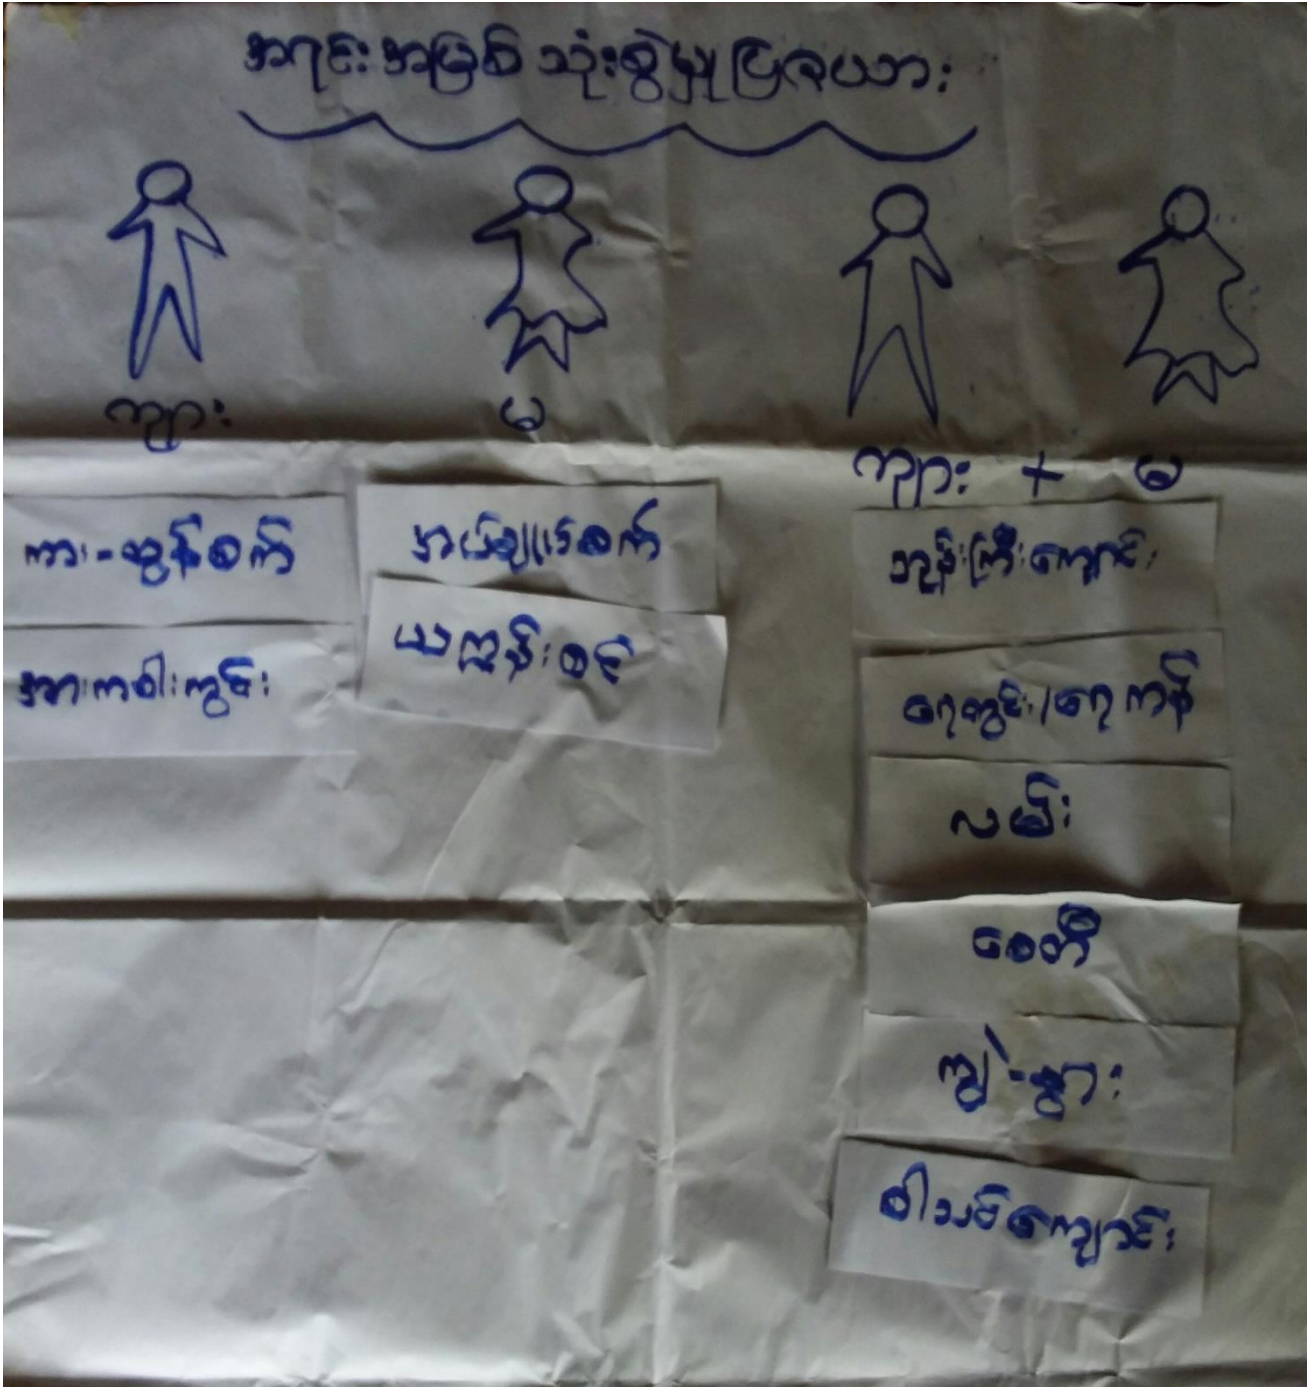 အရင်းအမြစ် သုံးစွဲမှု ပြဇယား
ကျား
မ
ကျား + မ
ကား-ထွန်စက်
အားကစါးကွင်း
အပ်ချုပ်စက်
ယက္ကန်းစင်
ဘုန်းကြီးကျောင်း
ရေတွင်း/ရေကန်
လမ်း
စေတီ
ကျွဲ-နွား
စါသင်ကျောင်း